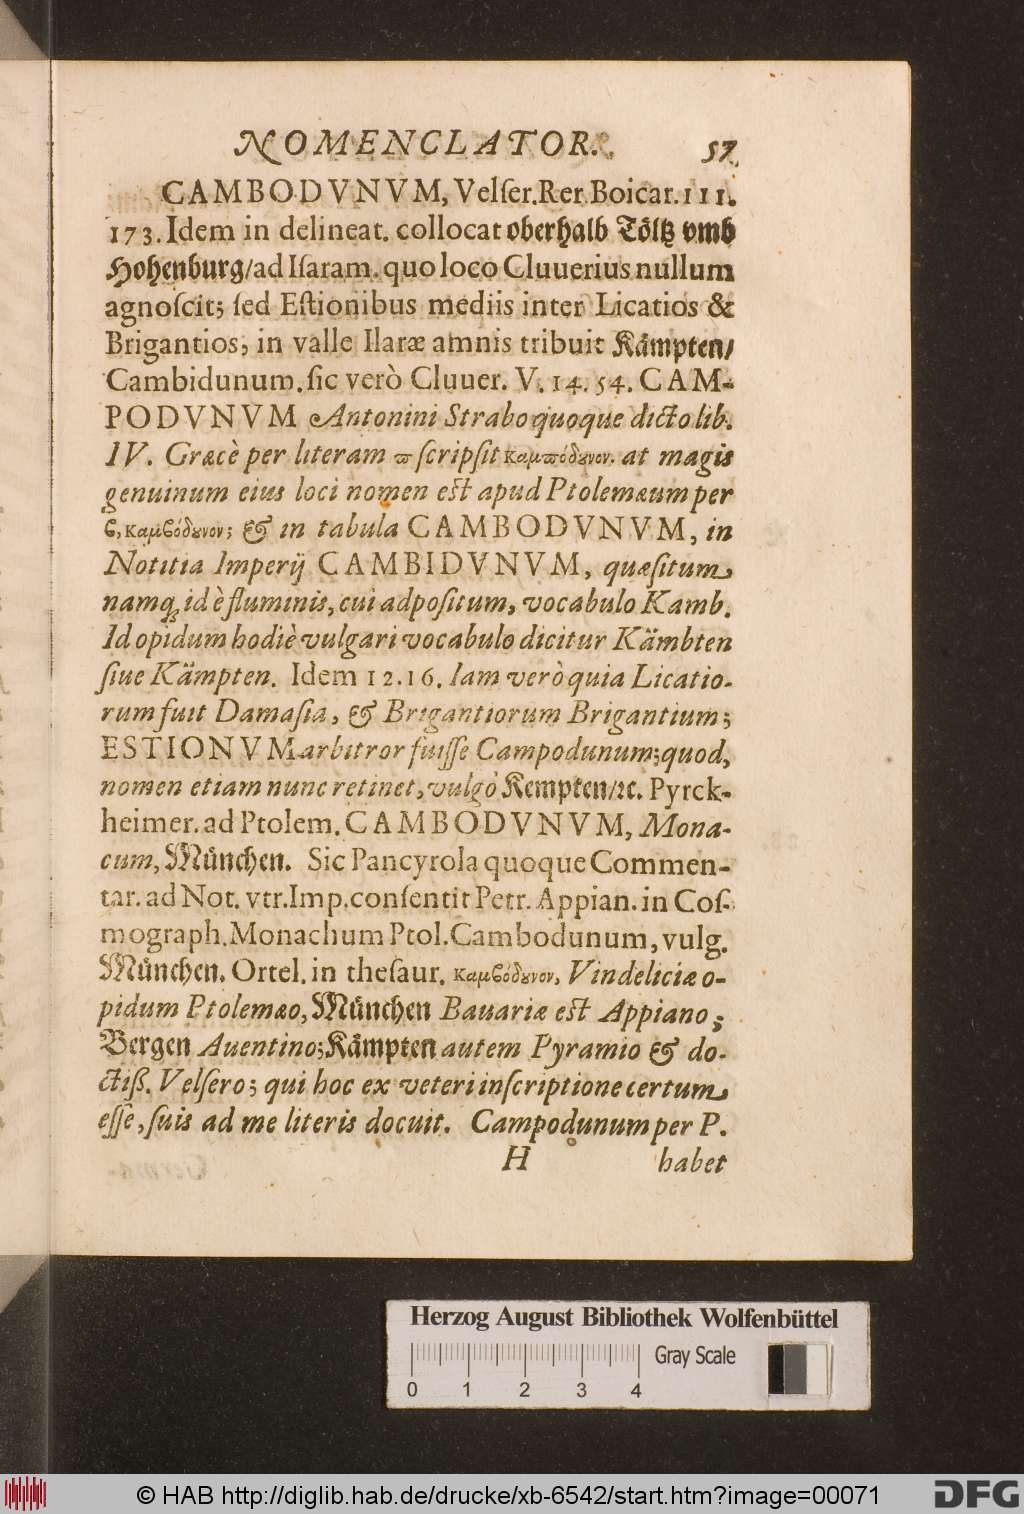 NOMENCLATOR. 57
CAMBODVNVM, Velſer. Rer. Boicar. 111.
173. Idem in delineat. collocat oberhalb Töltz vmb
Hohenburg/ ad Iſaram. quo loco Cluuerius nullum
agnoſcit; ſed Eſtionibus mediis inter Licatios &
Brigantios, in valle Ilaræ amnis tribuit Kämpten/
Cambidunum. ſic verò Cluuer. V. 14. 54. CAM-
PODVNVM Antonini Strabo quoque dicto lib.
IV. Græcè per literam ϖ ſcripſit καμϖόδȣνον. at magis
genuinum eius loci nomen eſt apud Ptolemæum per
ϐ, καμϐόδȣνον; & in tabula CAMBODVNVM, in
Notitia Imperij CAMBIDVNVM, quæſitum
namq; id è fluminis, cui adpoſitum, vocabulo Kamb.
Id opidum hodiè vulgari vocabulo dicitur Kämbten
ſiue Kämpten. Idem 12. 16. Iam verò quia Licatio-
rum fuit Damaſia, & Brigantiorum Brigantium;
ESTIONVM arbitror fuiſſe Campodunum; quod,
nomen etiam nunc retinet, vulgò Kempten/ ꝛc. Pyrck-
heimer. ad Ptolem. CAMBODVNVM, Mona-
cum, München. Sic Pancyrola quoque Commen-
tar. ad Not. vtr. Imp. conſentit Petr. Appian. in Coſ-
mograph. Monachum Ptol. Cambodunum, vulg.
München. Ortel. in theſaur. καμϐόδȣνον, Vindeliciæ o-
pidum Ptolemæo, München Bauariæ eſt Appiano;
Bergen Auentino; Kämpten autem Pyramio & do-
ctiß. Velſero; qui hoc ex veteri inſcriptione certum
eſſe, ſuis ad me literis docuit. Campodunum per P.
H habet
Herzog August Bibliothek Wolfenbüttel
Gray Scale
0 1 2 3 4
© HAB http://diglib.hab.de/drucke/xb-6542/start.htm?image=00071
DFG